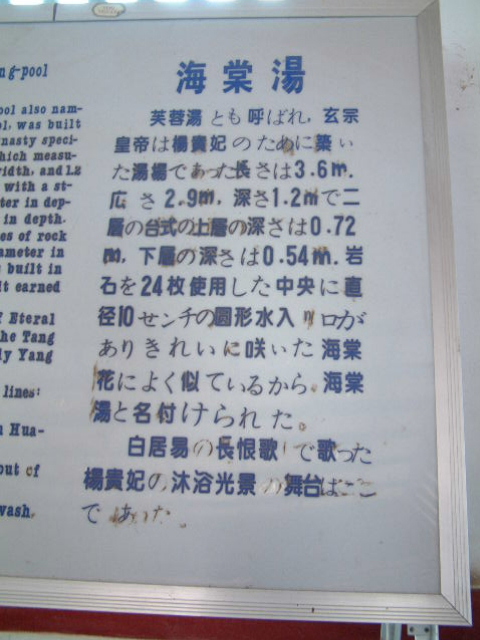 ng-pool
ool also nam-
ol, was built
nasty speci-
which measu-
ridth, and 1.2
with a st-
ter in dep-
in depth.
es of rock
ameter in
built in
lt earned
f Eteral
he Tang
ly Yang
lines:
n Hua-
out of
wash.
海棠湯
芙蓉湯とも呼ばれ,玄宗
皇帝は楊貴妃のために築い
た湯場であった長さは3.6m.
広さ2.9m,深さ1.2mで二
層の台式の上層の深さは0.72
m,下層の深さは0.54m.岩
石を24枚使用した中央に直
径10センチの圓形水入り口が
ありきれいに咲いた海棠
花によく似ているから.海棠
湯と名付けられた。
白居易の長恨歌で歌った
楊貴妃の沐浴光景の舞台はここ
で